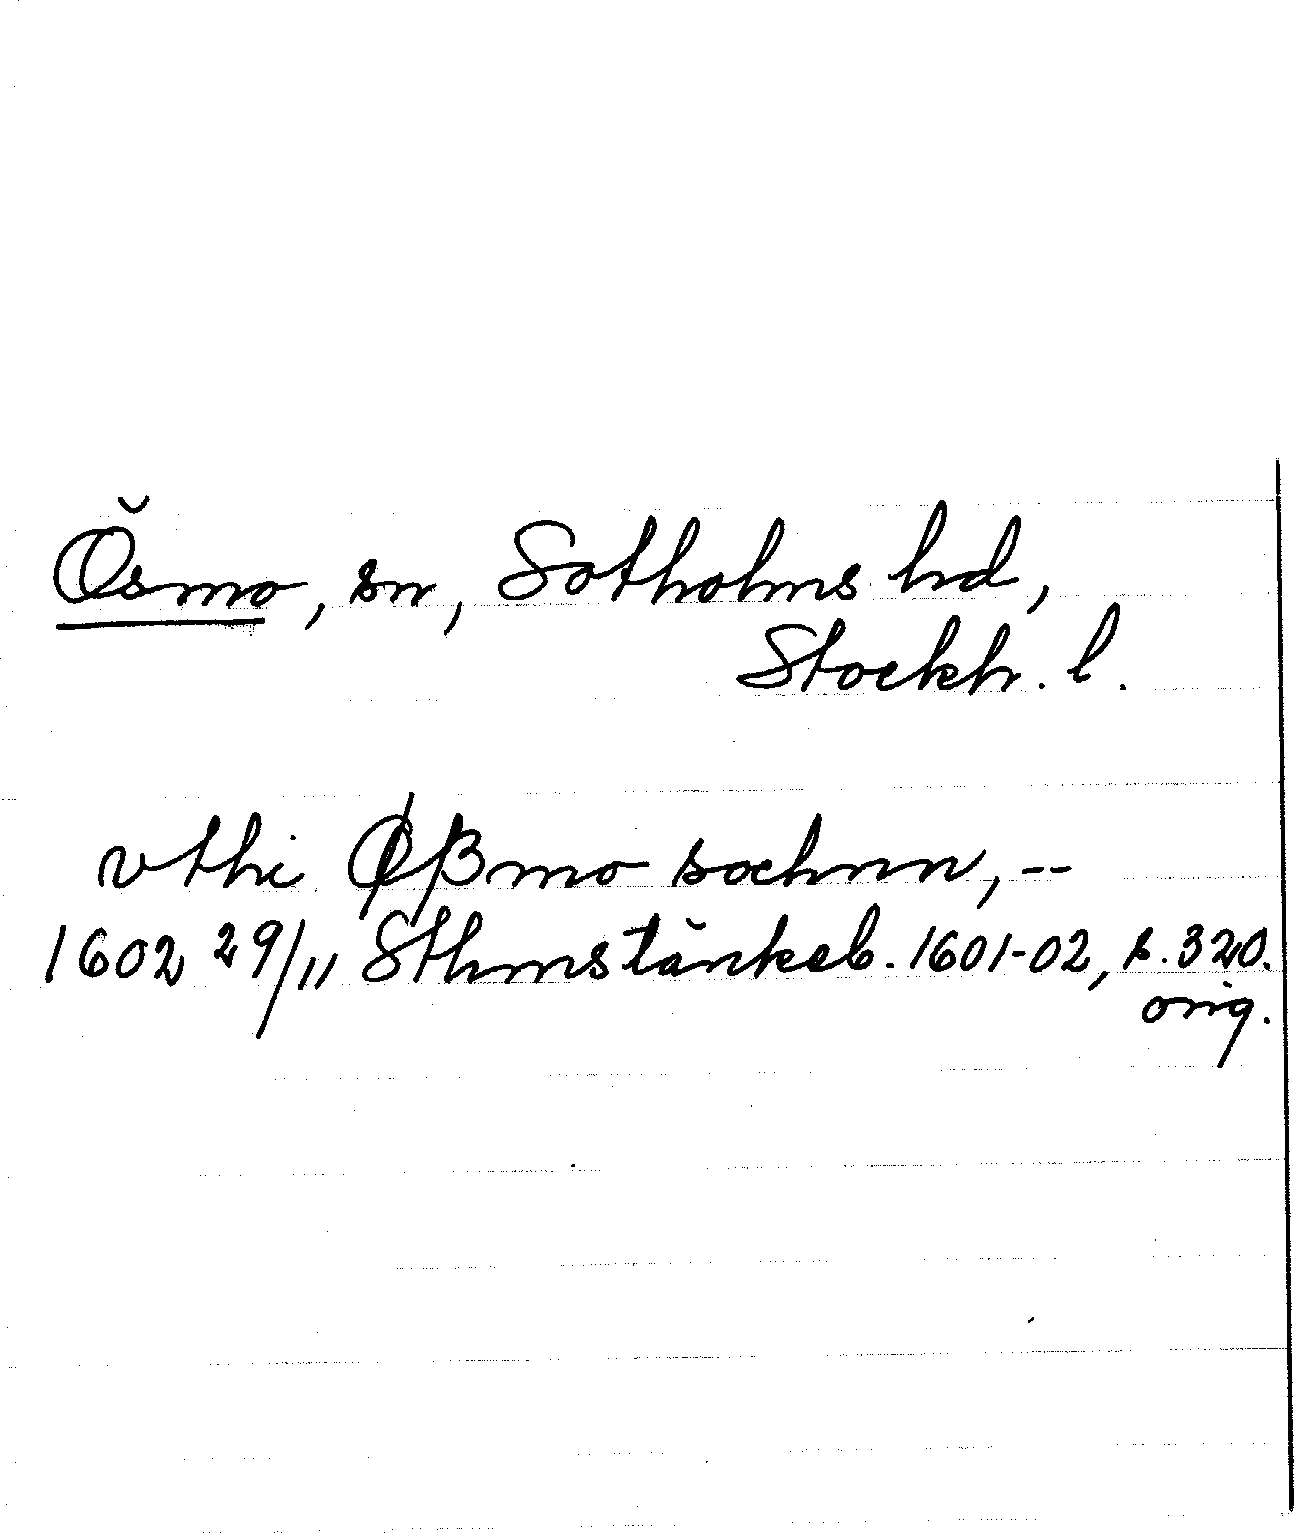 Ösmo, sn, Sotholms hd,
Stockh. l.
vthi Øßmo sochnn, --
1602 29/11 Sthmstänkeb. 1601-02, s. 320.
orig.